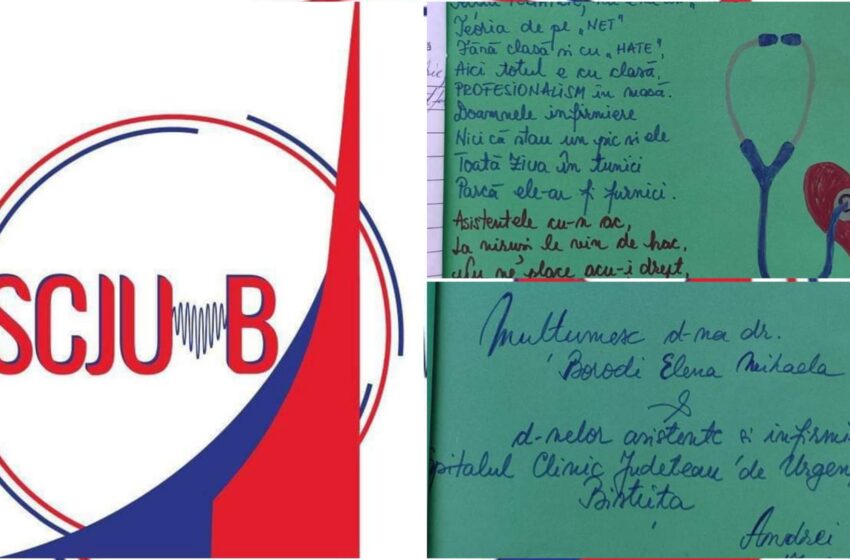 SCJU B
Teoria de pe „NET"
Fără clasă și cu „HATE",
Aici totul e cu clasă,
PROFESIONALISM în masă.
Doamnele infirmiere
Nici că stau un pic și ele
Toată ziua în tunici
Parcă ele-ar fi furnici.
Asistentele cu-n ac,
La nisuri le vin de hac,
Nu ne place acu-i drept,
Mulțumesc d-na dr.
Borodi Elena Mihaela
&
d-nelor asistente și infirmi
pitalul Clinic Județean de Urgen
Bistrița
Andrei